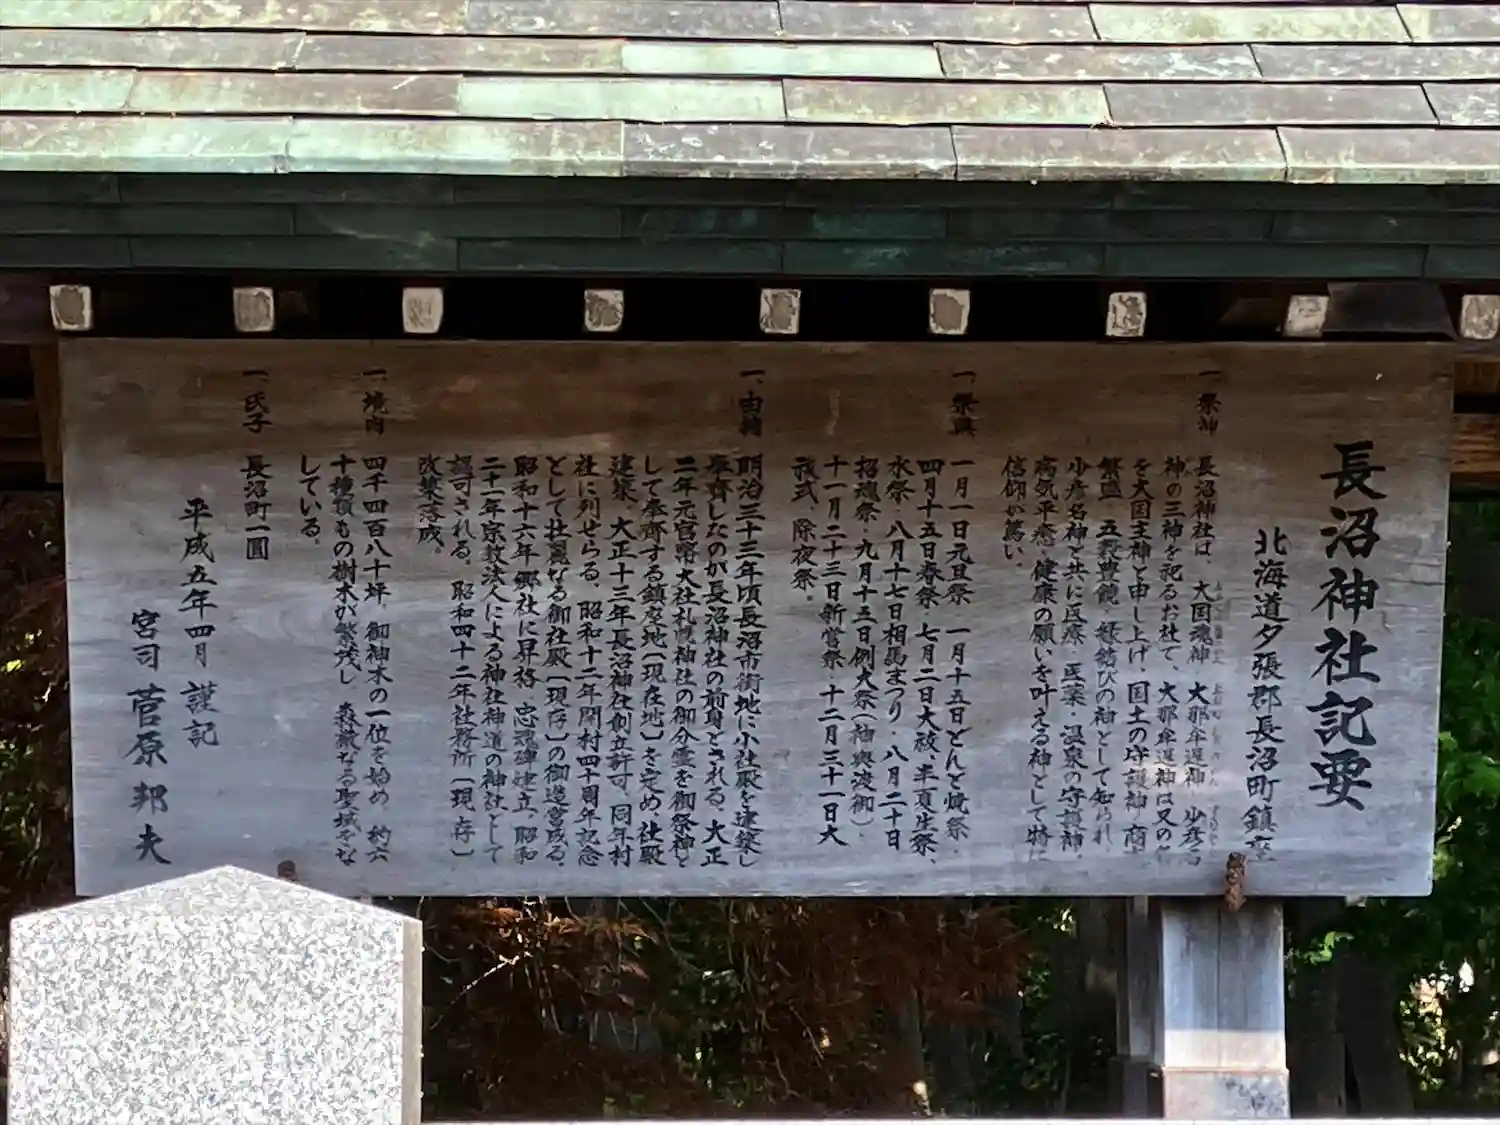 長沼神社記要
北海道夕張郡長沼町鎮座
一、祭神
長沼神社は、大国魂神 大那牟遅神 少彦名
神の三神を祀るお社で、大那牟遅神は又の名
を大国主神と申し上げ、国土の守護神、商売
繁盛、五穀豊饒、縁結びの神として知られ、
少彦名神と共に医療・医薬・温泉の守護神、
病気平癒、健康の願いを叶える神として特に
信仰が篤い。
一、祭典
一月一日元旦祭 一月十五日どんと焼祭、
四月十五日春祭、七月二日大祓、半夏生祭、
水祭、八月十七日相馬まつり、八月二十日
招魂祭、九月十五日例大祭(神輿渡御)、
十一月二十三日新嘗祭、十二月三十一日大
祓式、除夜祭。
一、由緒
明治三十三年頃長沼市街地に小社殿を建築し
奉齋したのが長沼神社の前身とされる、大正
二年元官幣大社札幌神社の御分霊を御祭神と
して奉齊する鎮座地〔現在地〕を定め、社殿
建築、大正十三年長沼神社創立許可、同年村
社に列せらる。昭和十二年開村四十周年記念
として壮麗なる御社殿〔現存〕の御造営成る。
昭和十六年郷社に昇格、忠魂碑建立、昭和
二十一年宗教法人による神社神道の神社として
認可される。昭和四十二年社務所〔現存〕
改築落成。
一、境内
四千四百八十坪、御神木の一位を始め、約六
十種類もの樹木が繁茂し、森厳なる聖域をな
している。
一、氏子
長沼町一圓
平成五年四月 謹記
宮司 菅原邦夫